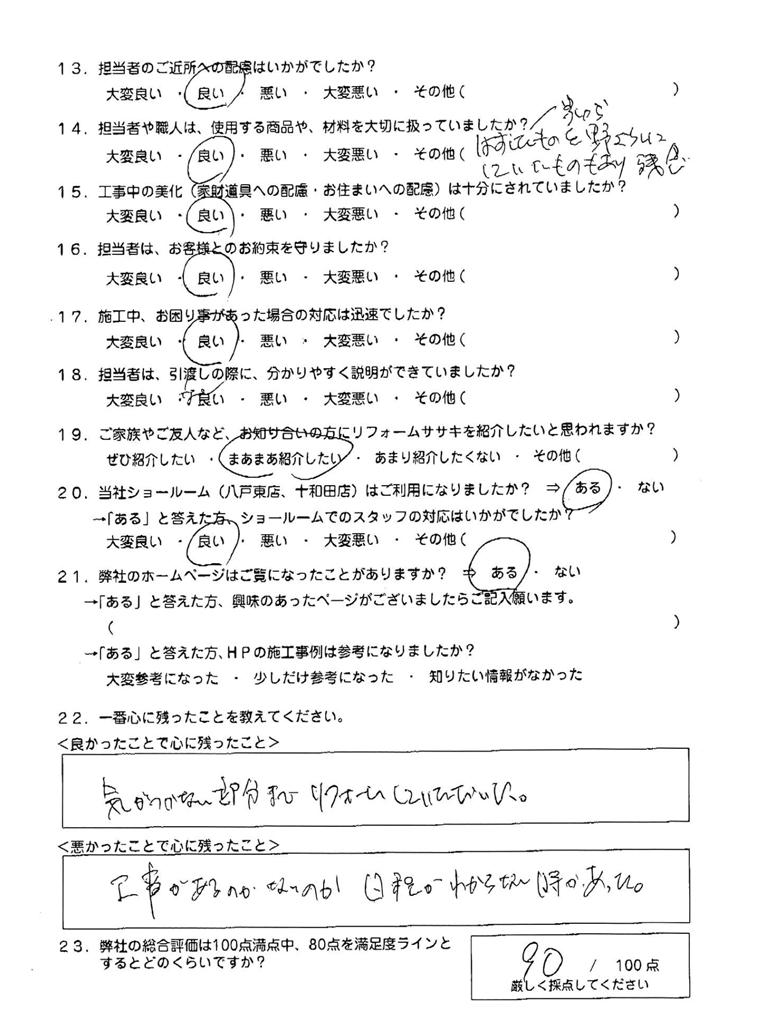 13．担当者のご近所への配慮はいかがでしたか？
大変良い ・ 良い ・ 悪い ・ 大変悪い ・ その他（ ）
14．担当者や職人は、使用する商品や、材料を大切に扱っていましたか？
はずしたものを野ざらしに
大変良い ・ 良い ・ 悪い ・ 大変悪い ・ その他（ ）
していたものもあり 残念
15．工事中の美化（家財道具への配慮・お住まいへの配慮）は十分にされていましたか？
大変良い ・ 良い ・ 悪い ・ 大変悪い ・ その他（ ）
16．担当者は、お客様とのお約束を守りましたか？
大変良い ・ 良い ・ 悪い ・ 大変悪い ・ その他（ ）
17．施工中、お困り事があった場合の対応は迅速でしたか？
大変良い ・ 良い ・ 悪い ・ 大変悪い ・ その他（ ）
18．担当者は、引渡しの際に、分かりやすく説明ができていましたか？
大変良い ・ 良い ・ 悪い ・ 大変悪い ・ その他（ ）
19．ご家族やご友人など、お知り合いの方にリフォームササキを紹介したいと思われますか？
ぜひ紹介したい ・ まあまあ紹介したい ・ あまり紹介したくない ・ その他（ ）
20．当社ショールーム（八戸東店、十和田店）はご利用になりましたか？ ⇒ ある ・ ない
→「ある」と答えた方、ショールームでのスタッフの対応はいかがでしたか？
大変良い ・ 良い ・ 悪い ・ 大変悪い ・ その他（ ）
21．弊社のホームページはご覧になったことがありますか？ ⇒ ある ・ ない
→「ある」と答えた方、興味のあったページがございましたらご記入願います。
（ ）
→「ある」と答えた方、ＨＰの施工事例は参考になりましたか？
大変参考になった ・ 少しだけ参考になった ・ 知りたい情報がなかった
22．一番心に残ったことを教えてください。
＜良かったことで心に残ったこと＞
気がつかない部分まで リフォームしていただいた。
＜悪かったことで心に残ったこと＞
工事があるのか ないのか 日程がわからない時があった。
23．弊社の総合評価は100点満点中、80点を満足度ラインと
するとどのくらいですか？
90 / 100点
厳しく採点してください